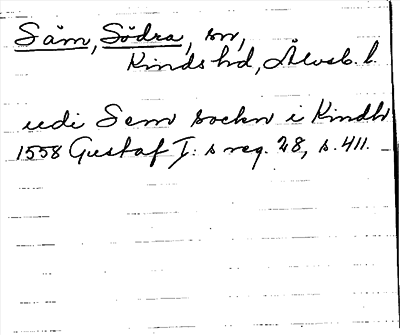 Säm, Södra, sn,
Kinds hd, Älvsb. l.
udi Sem sockn i Kindh
1558 Gustaf I:s reg. 28, s. 411.